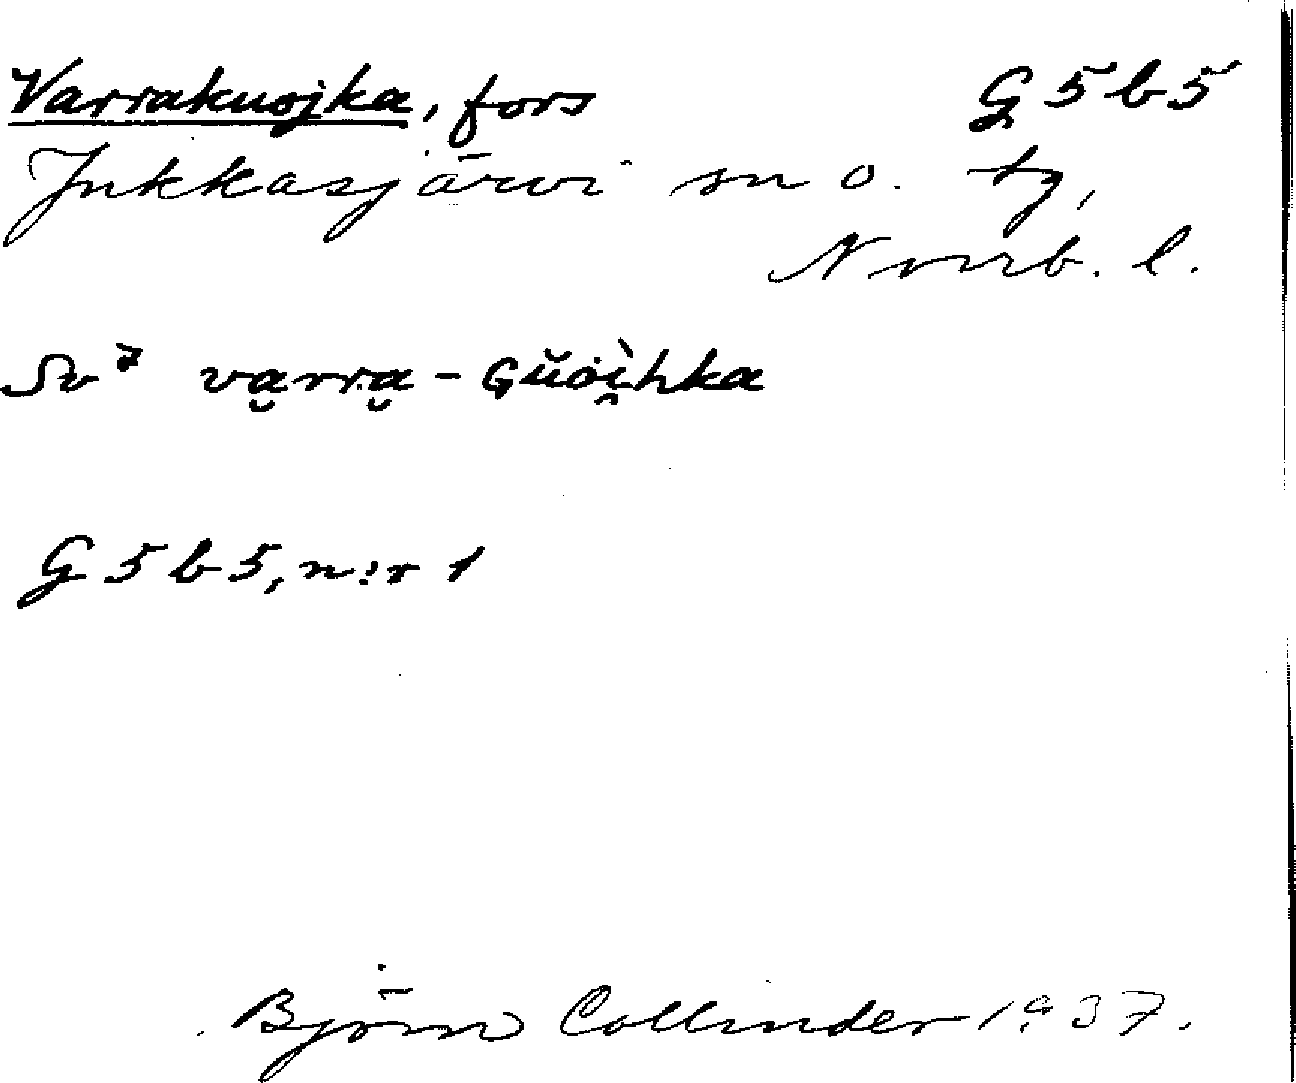 Varrakuojka, fors G 5 b 5
Jukkasjärvi sn o. tg,
Norrb. l.
Sv² va̮rra̮ - Gŭòi̯hka
G 5 b 5, n:r 1
Björn Collinder 1937.